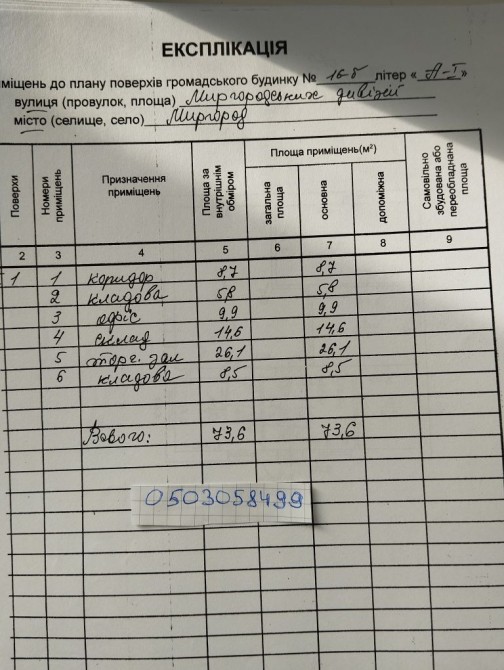 ЕКСПЛІКАЦІЯ
міщень до плану поверхів громадського будинку № 16-б літер « А-І »
вулиця (провулок, площа) Миргородських дивізій
місто (селище, село) Миргород
Поверхи Номери приміщень Призначення приміщень Площа за внутрішнім обміром Площа приміщень(м²) загальна площа основна допоміжна Самовільно збудована або переобладнана площа
2 3 4 5 6 7 8 9
1 1 коридор 8,7 8,7
2 кладова 5,8 5,8
3 офіс 9,9 9,9
4 склад 14,6 14,6
5 торг. зал 26,1 26,1
6 кладова 8,5 8,5
Всього: 73,6 73,6
0503058499